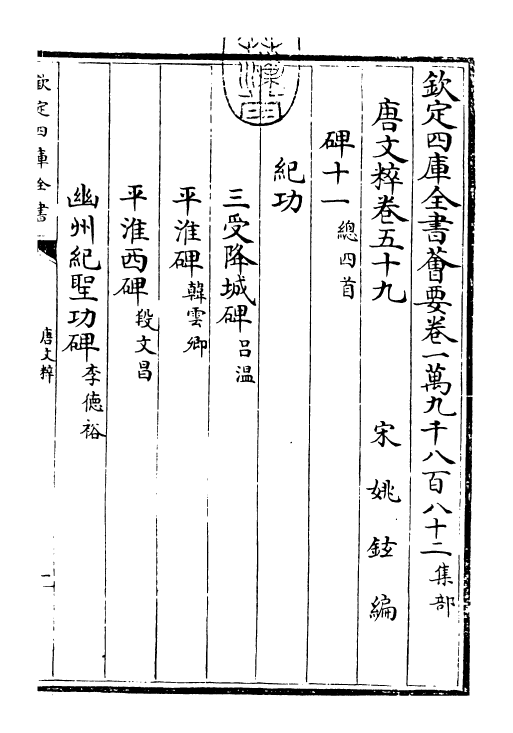 欽定四庫全書薈要卷一萬九千八百八十二集部
唐文粹卷五十九
宋姚鉉編
碑十一總四首
紀功
三受降城碑呂溫
平淮碑韓雲卿
平淮西碑段文昌
幽州紀聖功碑李德裕
欽定四庫全書
唐文粹